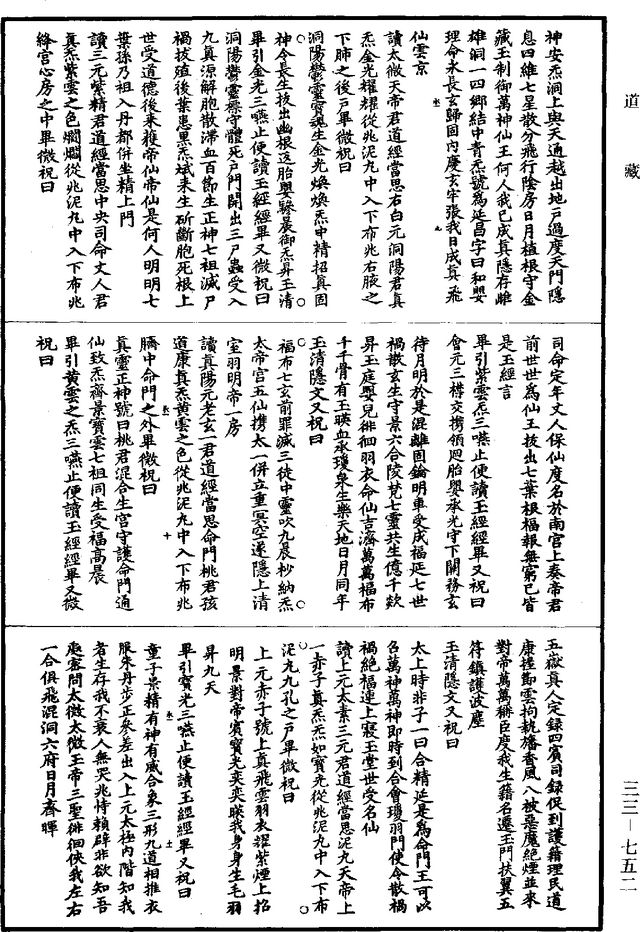 道藏
神安炁洞上與天通越出地戸過度天門隱
息四維七星散分飛行陰房日月植根守金
藏玉制御萬神仙王何人我已成真隱存雌
雄洞一四鄉結中青炁號爲延昌字曰和嬰
理命永長玄歸固內慶玄牢張我日成真飛
仙雲京
讀太微天帝君道經當思右白元洞陽君真
炁金光耀耀從兆泥九中入下布兆右腋之
下肺之後戸畢微祝曰
洞陽鬱靈寶魂生金光煥煥炁中精招真固
神令長生拔出幽根返胎嬰驂晨御炁昇玉清
畢引金光三嚥止便讀玉經經畢又微祝曰
洞陽鬱靈標守體死戸門開出三尸蟲受入
九真源解胞散滯血百節生正神七祖滅尸
禍拔殖後葉患累炁斌來生斫斷胞死根上
世受道德後來獲帝仙帝仙是何人明明七
葉孫乃祖入丹都併坐精上門
讀三元紫精君道經當思中央司命丈人君
真炁紫雲之色爛爛從兆泥九中入下布兆
絳宮心房之中畢微祝曰
司命定年丈人保仙度名於南宮上奏帝君
前世世爲仙王拔出七葉根福報無窮已皆
是玉經言
畢引紫雲炁三嚥止便讀玉經經畢又祝曰
會元三構交攜領迴胎嬰承光守下開務玄
待月明於是混離固錀明車受成福延七世
禍散玄生守景六合陵梵七靈共生億千欻
昇玉庭嬰兒徘徊羽衣命仙吉濟萬萬福布
千千骨有玉映血承瓊泉生樂天地日月同年
玉清隱文又祝曰
福布七玄前罪滅三徒中靈吹九晨杪納炁
太帝宮五仙攜太一併立重冥空遂隱上清
室羽明帝一房
讀真陽元老玄一君道經當思命門桃君孩
道康真炁黄雲之色從兆泥九中入下布兆
臍中命門之外畢微祝曰
真靈正神號曰桃君混合生宮守護命門通
仙致炁齊景寶雲七祖同生受福高晨
畢引黄雲之炁三嚥止便讀玉經經畢又微
祝曰
五嶽真人定錄四賓司録促到護籍理民道
康撞節雲拘執旛香風八被惡魔絕煙並來
對帝萬萬稱臣度我生籍名遷玉門扶翼五
符鎮護波塵
玉清隱文又祝曰
太上時非子一曰合精延是爲命門王可以
召萬神萬神即時到合會瓊羽門使令散禍
禍絕福連上寢玉堂世受名仙
讀上元太素三元君道經當思泥九天帝上
一赤子真炁炁如寶光從兆泥九中入下布
泥九九孔之戸畢微祝曰
上元赤子號上真飛雲羽衣耀紫煙上招
明景對帝賓寶光奕奕映我身身生毛羽
昇九天
畢引寶光三嚥止便讀玉經經畢又祝曰
童子景精有神有威合象三形九道相推衣
服朱丹步正參差出入上元太極內階知我
者生存我不衰人無哭兆恃賴辟非欲知吾
處密問太微太微玉帝三聖徘徊俠我左右
一合俱飛混洞六府日月齊暉
三三—七五二